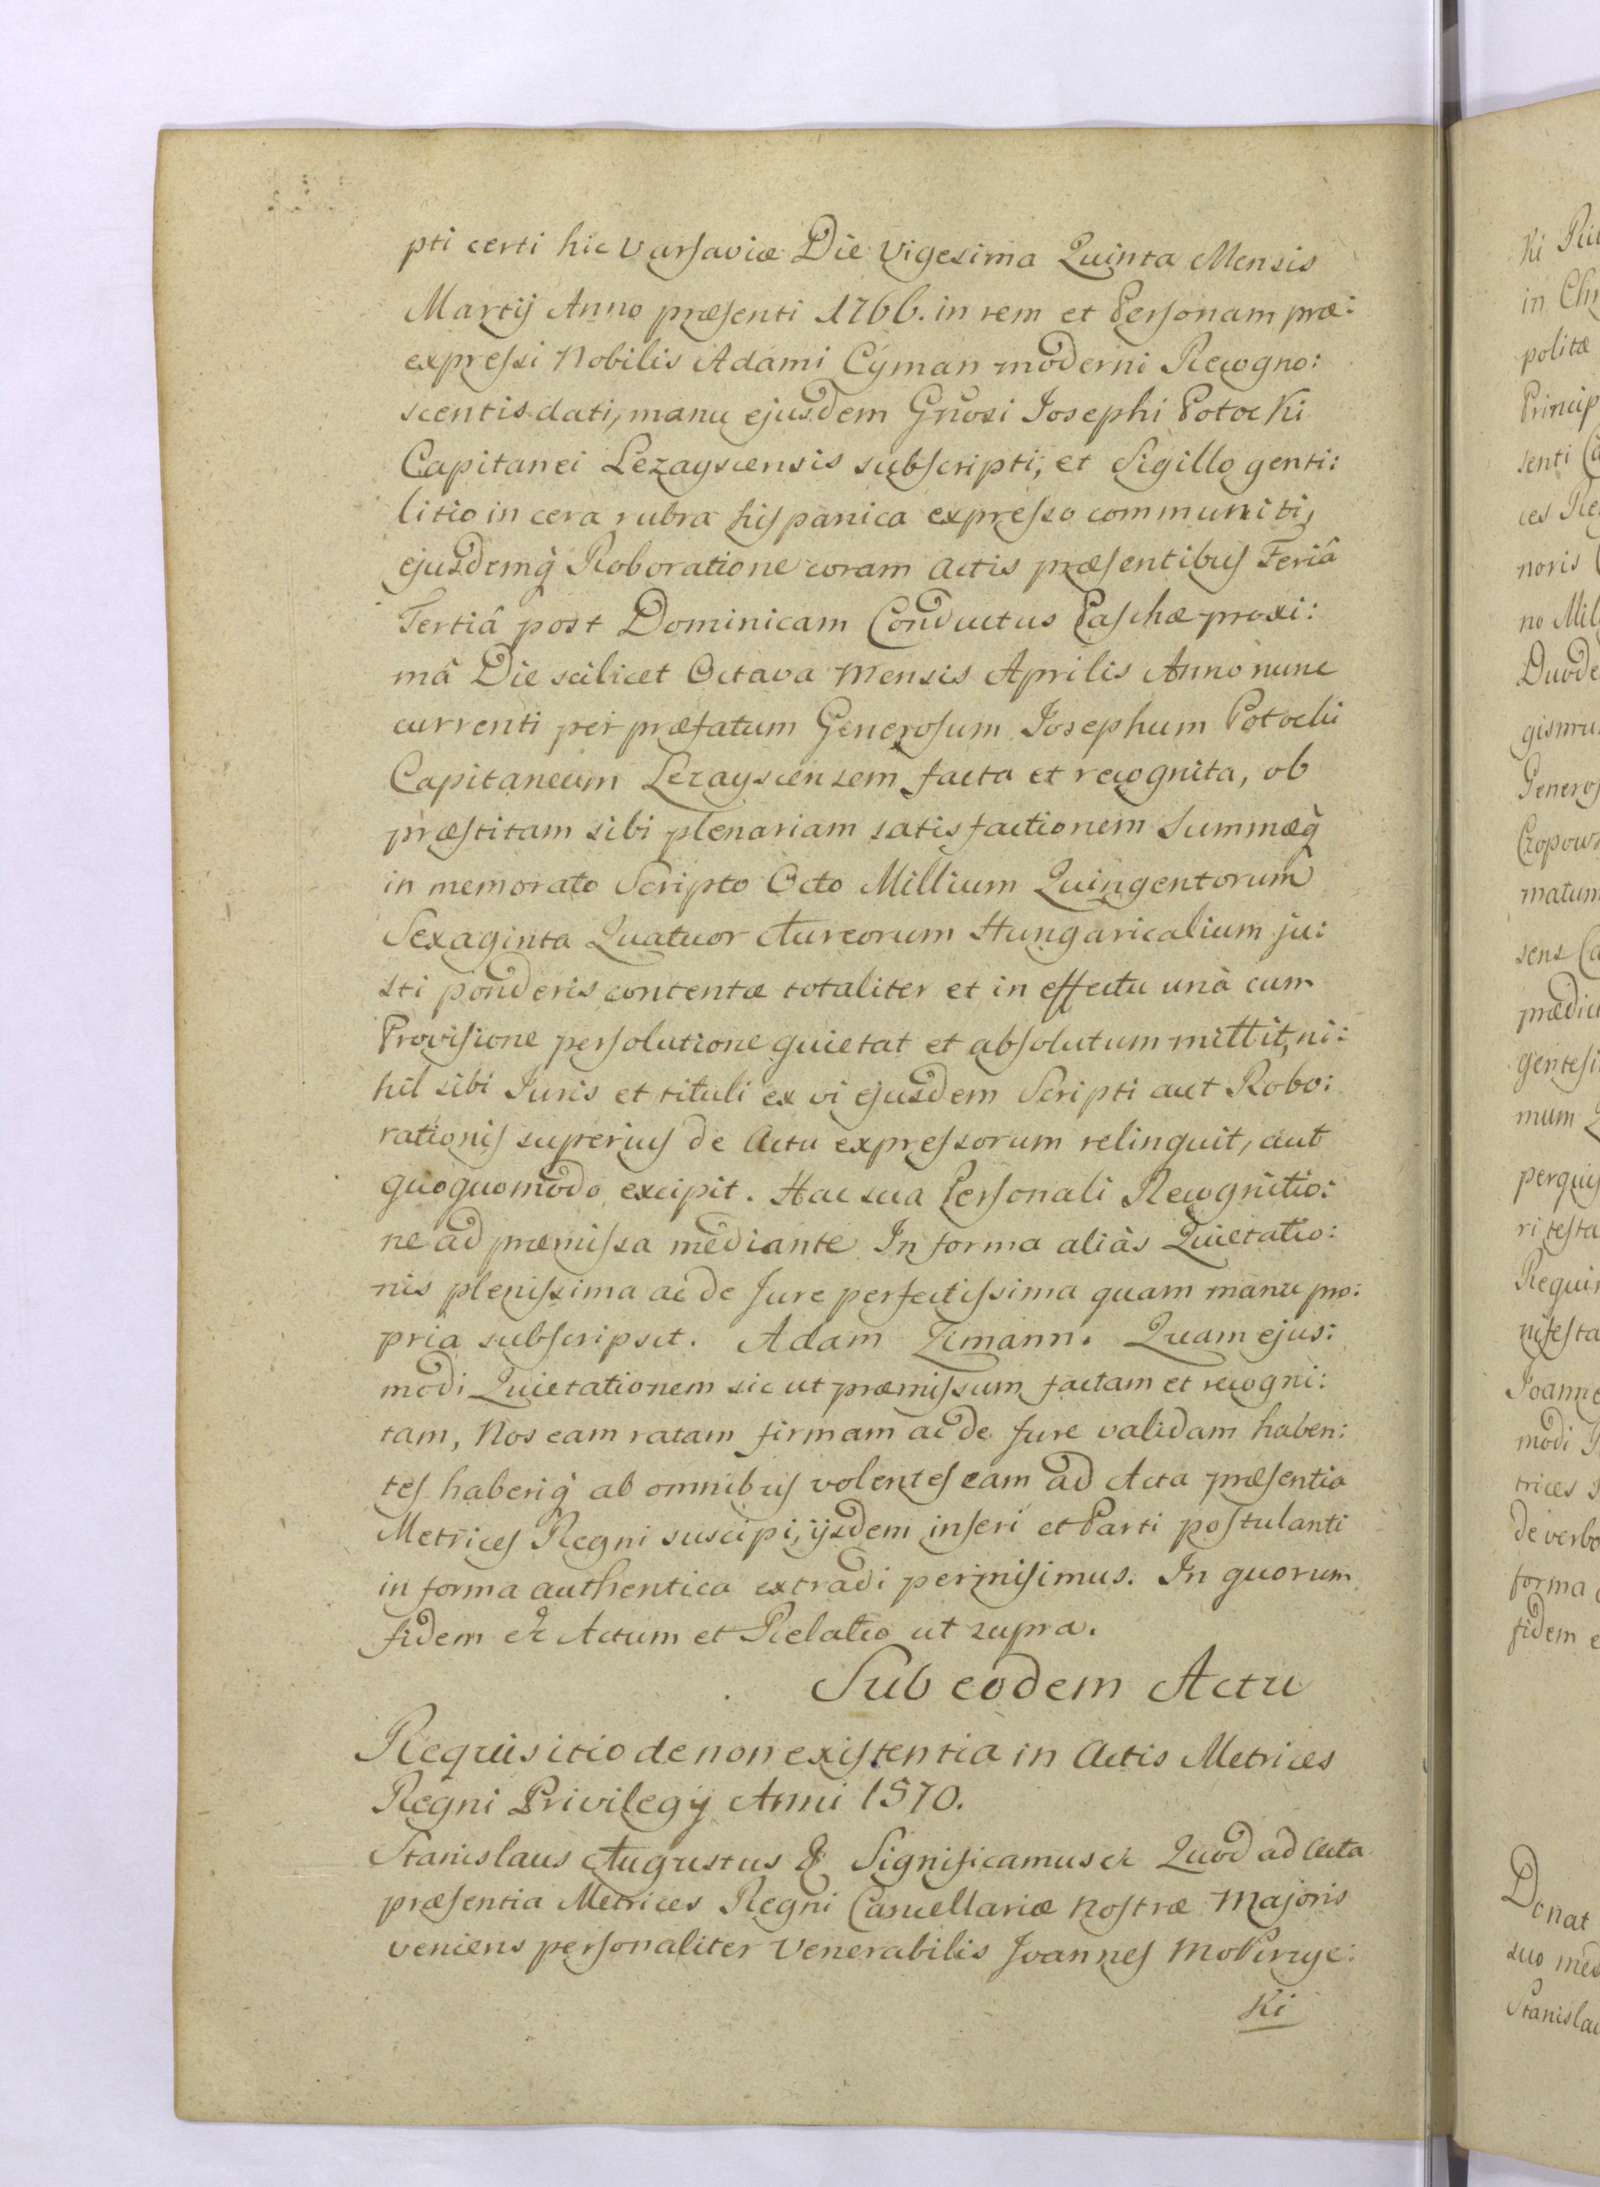 pti certi hic Varsaviæ Die Vigesima Quinta Mensis
Martij Anno præsenti 1766. in rem et Personam præ:
expressi Nobilis Adami Cyman moderni Recogno:
scentis dati, manu ejusdem Gnosi Josephi Potocki
Capitanei Lezayscensis subscripti, et Sigillo genti:
litio in cera rubra hispanica expresso communiti,
ejusdemq̀ Roboratione coram Actis præsentibus Feriâ
Tertiâ post Dominicam Conductus Paschæ proxi:
mâ Die scilicet Octava Mensis Aprilis Anno nunc
currenti per præfatum Generosum Josephum Potocki
Capitaneum Lezayscensem facta et recognita, ob
præstitam sibi plenariam satisfactionem Summæq̀
in memorato Scripto Octo Millium Quingentorum
Sexaginta Quatuor Aureorum Hungaricalium ju:
sti ponderis contentæ totaliter et in effectu unà cum
Provisione persolutione quietat et absolutum mittit, ni:
hil sibi Juris et tituli ex vi ejusdem Scripti aut Robo:
rationis superius de Actu expressorum relinquit, aut
quoquomodo excipit. Hac sua Personali Recognitio:
ne ad præmissa mediante In forma aliàs Quietatio:
nis plenissima ac de Jure perfectissima quam manu pro:
pria subscripsit. Adam Zimann. Quam ejus:
modi Quietationem sic ut præmissum factam et recogni:
tam, Nos eam ratam firmam ac de Jure validam haben:
tes haberiq̀ ab omnibus volentes eam ad Acta præsentia
Metrices Regni suscipi, ijsdem inseri et Parti postulanti
in forma authentica extradi permisimus. In quorum
fidem &c Actum et Relatio ut supra.
Sub eodem Actu
Requisitio de non existentia in Actis Metrices
Regni Privilegij Anni 1570.
Stanislaus Augustus & Significamus &c Quod ad Acta
præsentia Metrices Regni Cancellariæ Nostræ Majoris
veniens personaliter Venerabilis Joannes
Ki
Ki
in
politæ
Princip
senti
noris
Duode
matum
sens
mum
perquis
Joanne
modi
trices
de verbo
forma
fidem e
Donat
suo med
Stanislau